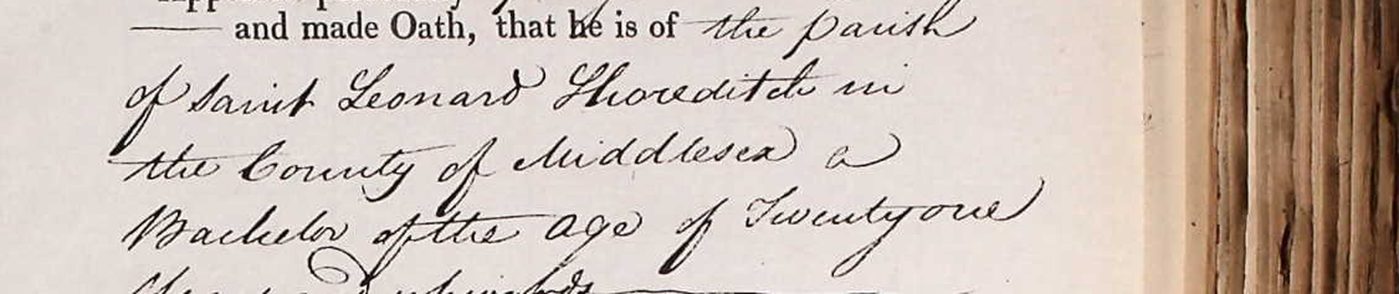 and made Oath, that he is of the parish
of Saint Leonard Shoreditch in
the County of Middlesex a
Bachelor of the age of Twenty one
upwards